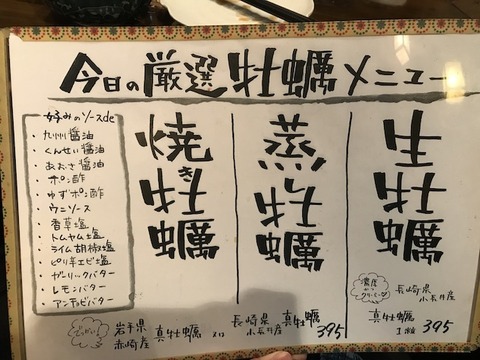 今日の厳選牡蠣メニュー
生牡蠣
濃度
かつ
クリーミー
長崎県
小長井産
真牡蠣
1粒 395
蒸し牡蠣
長崎県
小長井産
真牡蠣
395
焼き牡蠣
でっかい
岩手県
赤崎産
真牡蠣
好みのソースde
・九州醤油
・くんせい醤油
・あおさ醤油
・ポン酢
・ゆずポン酢
・ウニソース
・香草塩
・トムヤム塩
・ライム胡椒塩
・ピリ辛エビ塩
・ガーリックバター
・レモンバター
・アンチョビバター